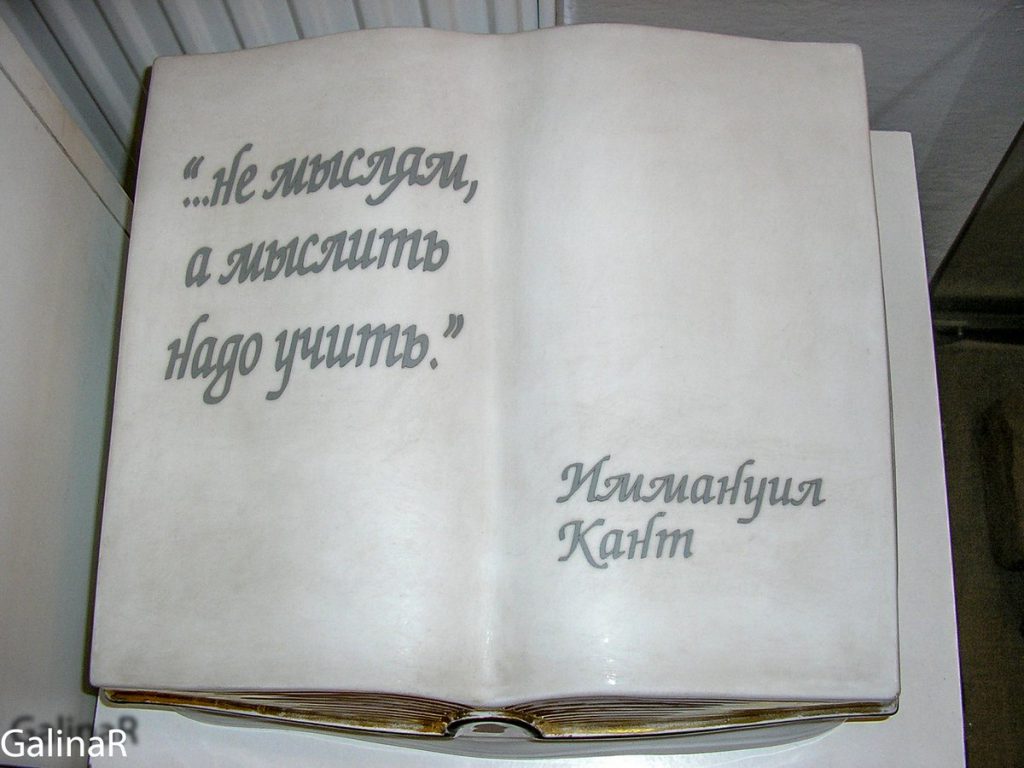 “...не мыслям,
а мыслить
надо учить.”
Иммануил
Кант
GalinaR